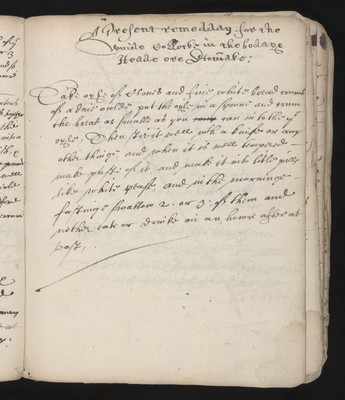 A Present remedday for the
Winde Collocke in the boddye
Heade or Stomake:
Take oyle of Cloves and fine white bread crume
of a daie oulde put the oyle in a spoone and crum
the bread as smalle as you can in to the
oyle, Then stir it well with a knife or any
other thinge, and when it is well tempered
make paste of it, and make it into litle pills
like white pease and in the morninge
fastinge swallow 2. or 3. of them and
nether eate or drinke an an houre after at
least,